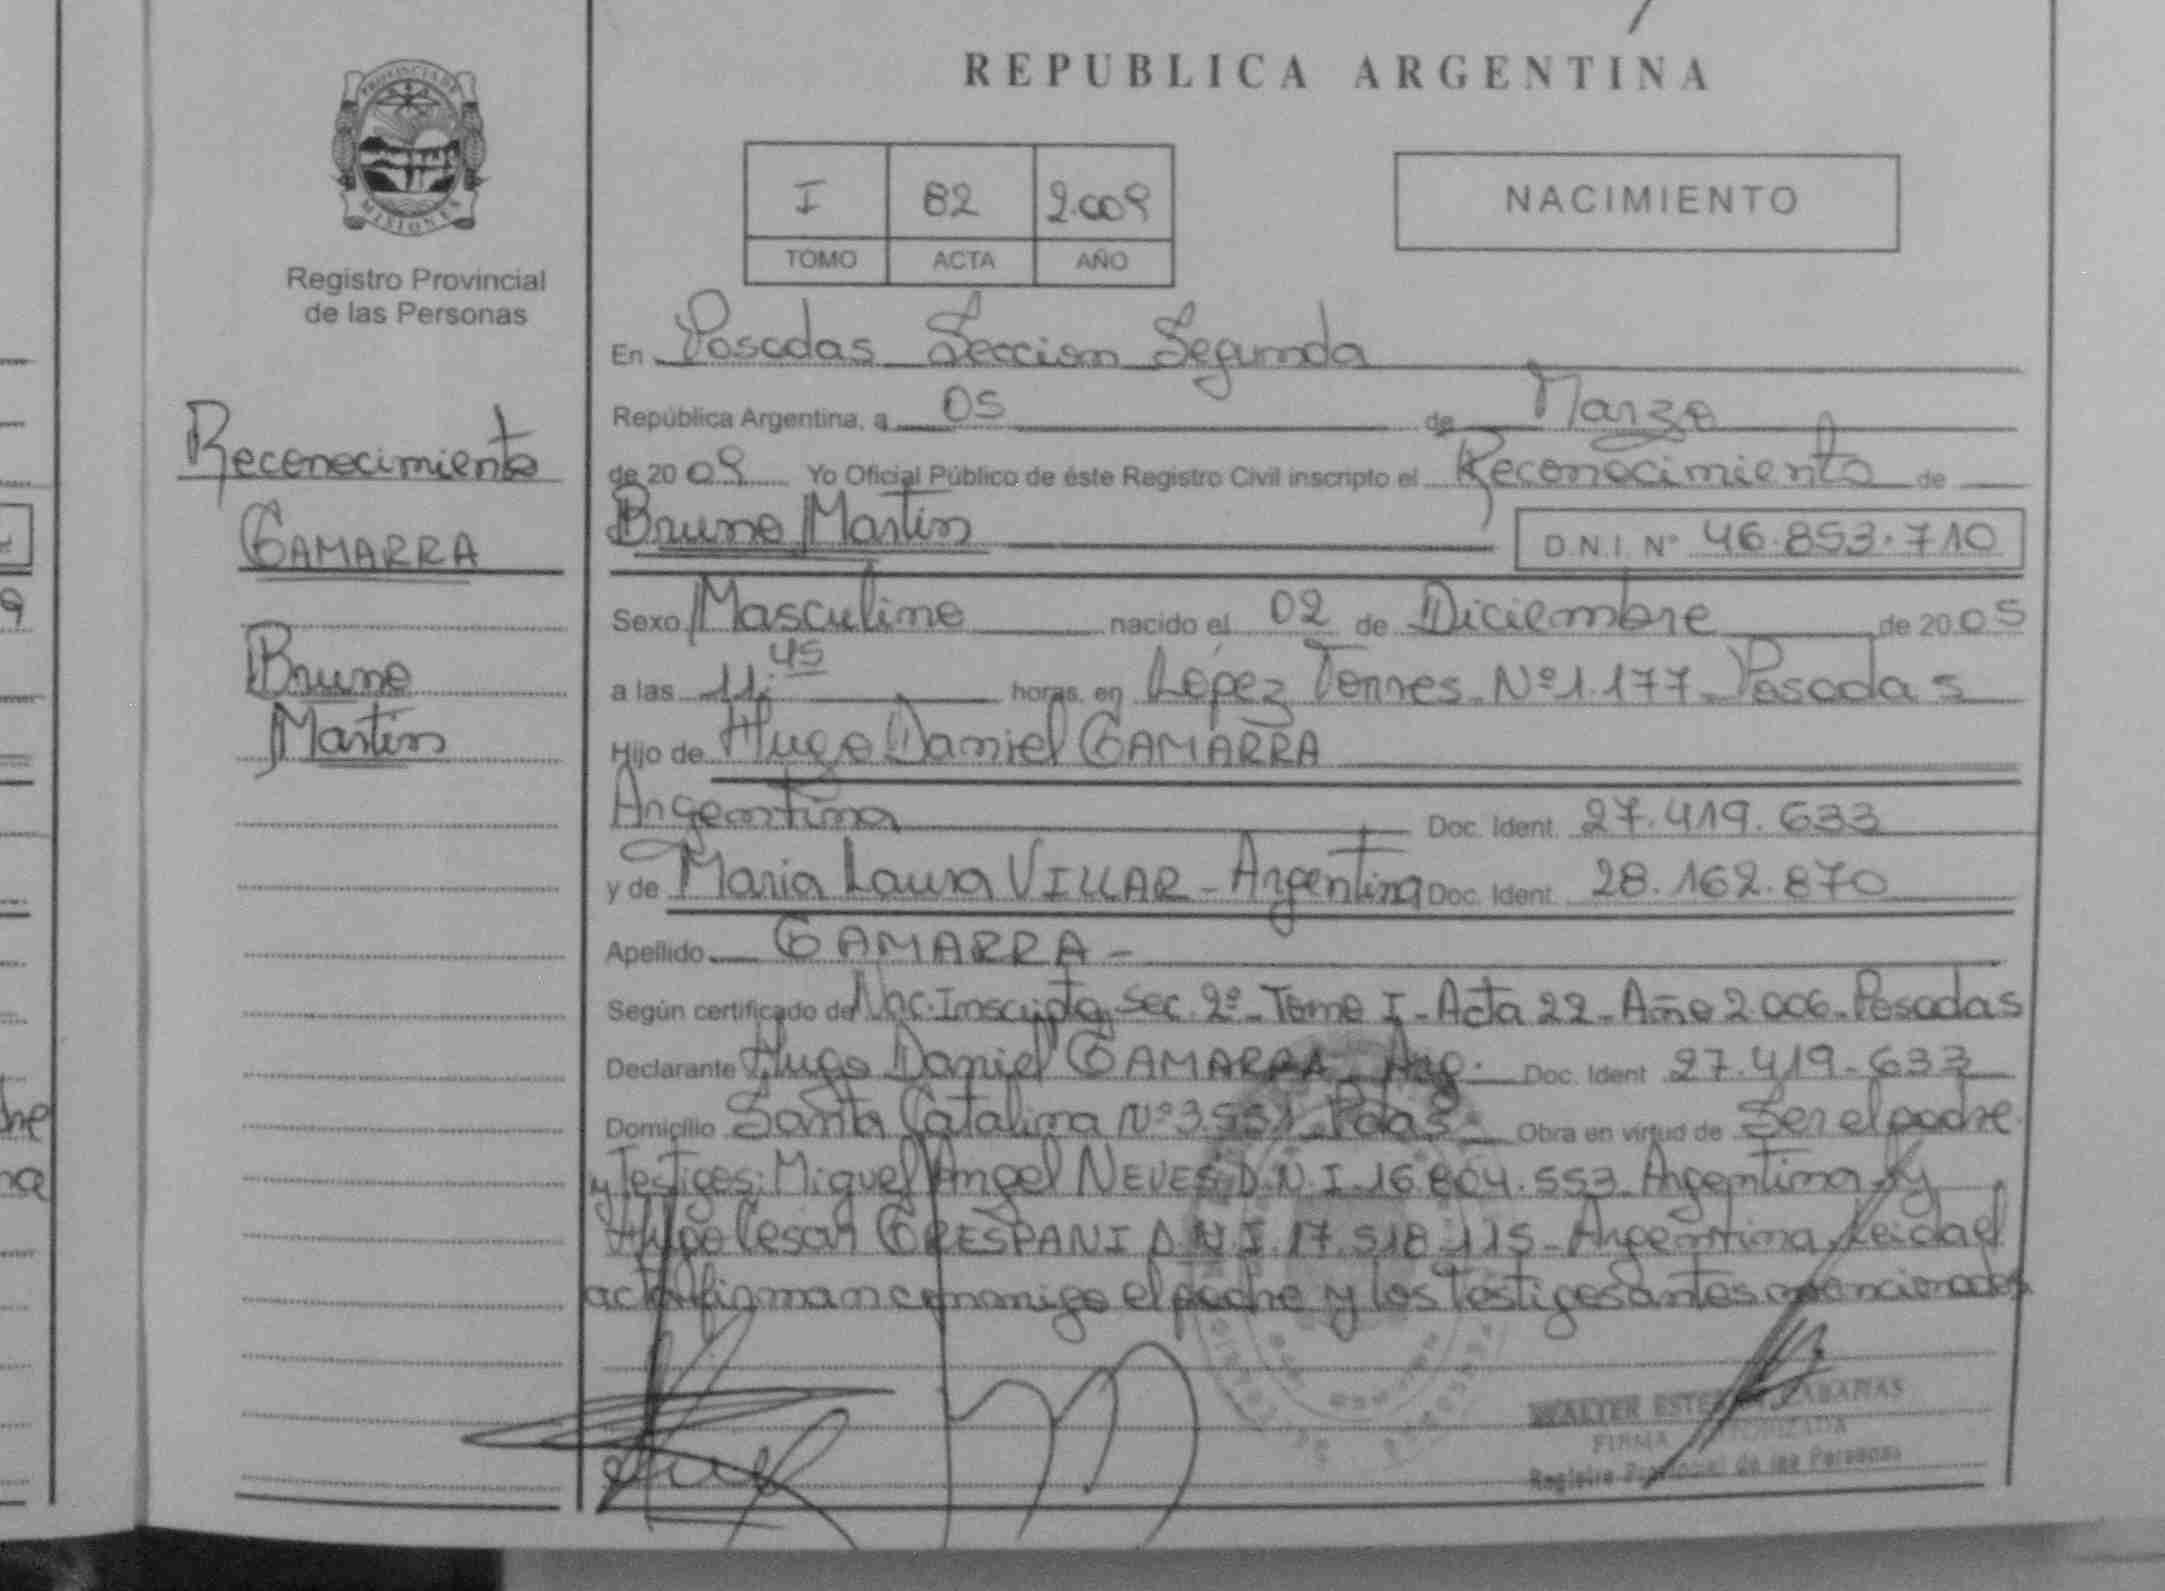 PROVINCIA DE
MISIONES
Registro Provincial
de las Personas
Reconocimiento
GAMARRA
Bruno
Martin
REPUBLICA ARGENTINA
I 82 2.009
TOMO ACTA AÑO
NACIMIENTO
En Posadas Seccion Segunda
República Argentina, a 05 de Marzo
de 20 09 Yo Oficial Público de éste Registro Civil inscripto el Reconocimiento de
Bruno Martin D.N.I. Nº 46.853.710
Sexo Masculino nacido el 02 de Diciembre de 20 05
a las 11:45 horas, en López Torres Nº 1.177 - Posadas
Hijo de Hugo Daniel GAMARRA
Argentina Doc. Ident. 27.419.633
y de Maria Laura VILLAR - Argentina Doc. Ident. 28.162.870
Apellido GAMARRA -
Según certificado de Nac. Inscripta Sec. 2º - Tomo I - Acta 22 - Año 2006 - Posadas
Declarante Hugo Daniel GAMARRA - Arg. Doc. Ident 27.419.633
Domicilio Santa Catalina Nº Pdas - Obra en virtud de Ser el padre
y Testigos: Miguel Angel NEVES D.N.I. 16.804.553 - Argentina - y
Hugo Cesar D.N.I. 17.518.115 - Argentina, Leida el
acta firman conmigo el padre y los testigos antes mencionados
WALTER CABAÑAS
FIRMA AUTORIZADA
Registro Provincial de las Personas